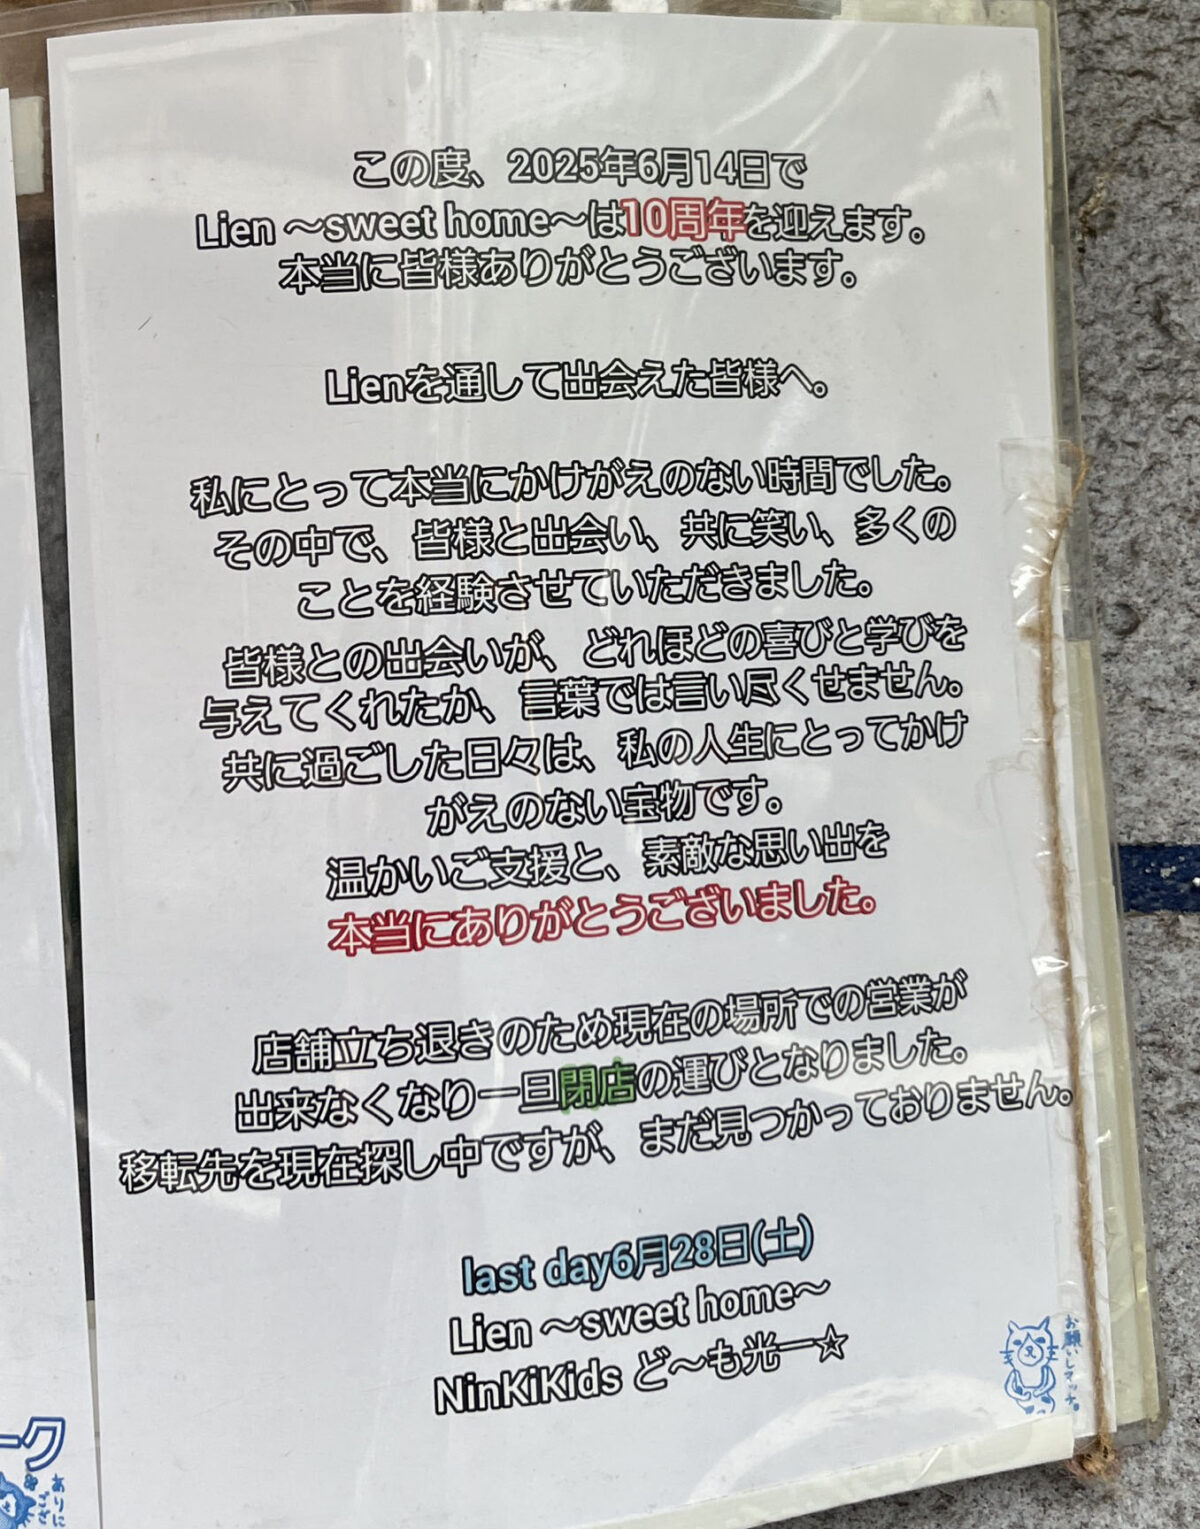 この度、2025年6月14日で
Lien 〜sweet home〜は10周年を迎えます。
本当に皆様ありがとうございます。
Lienを通して出会えた皆様へ。
私にとって本当にかけがえのない時間でした。
その中で、皆様と出会い、共に笑い、多くの
ことを経験させていただきました。
皆様との出会いが、どれほどの喜びと学びを
与えてくれたか、言葉では言い尽くせません。
共に過ごした日々は、私の人生にとってかけ
がえのない宝物です。
温かいご支援と、素敵な思い出を
本当にありがとうございました。
店舗立ち退きのため現在の場所での営業が
出来なくなり一旦閉店の運びとなりました。
移転先を現在探し中ですが、まだ見つかっておりません。
last day6月28日(土)
Lien 〜sweet home〜
NinKiKids ど〜も光一☆
お願いしマッチ。
ーク